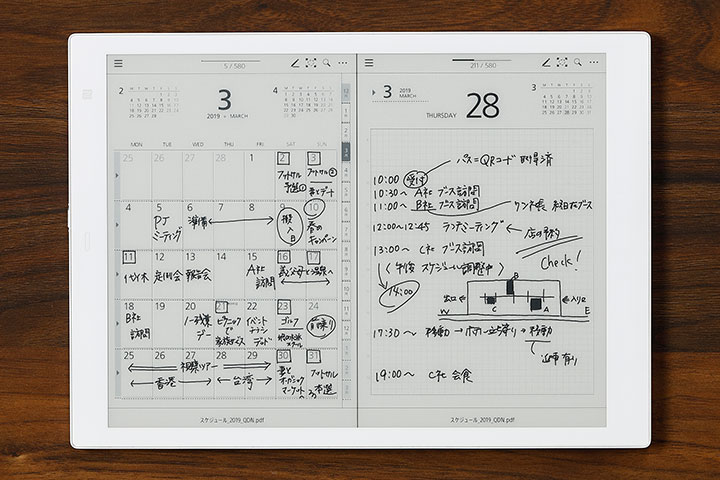 5 / 580
2
3
2019 ▸ MARCH
4
MON TUE WED THU FRI SAT SUN
25 26 27 28 1 2 3
フットサル 予選① フットサル②
妻とデート
4 5 6 7 8 9 10
PJ ミーティング 準備 搬入日 春の キャンペーン
11 12 13 14 15 16 17
代々木 定例会 報告会 A社 訪問 義父母と温泉へ
18 19 20 21 22 23 24
B社 訪問 ノー残業 デー ピクニック で 家族サービス イベント ゴルフ
25 26 27 28 29 30 31
視察ツアー 妻と オーガニック マーケット フットサル 本選
香港 台湾
スケジュール_2019_QDN.pdf
211 / 580
3 2019 MARCH
THURSDAY 28
3
パス=QRコード 取得済
10:00 受付
10:30〜 A社 ブース訪問
11:00〜 B社 ブース訪問
12:00〜12:45 ランチミーティング ← 店の予約
13:00〜 C社 ブース訪問
Check!
(午後 スケジュール調整中)
14:00
B
出口← C A ←入り口
W E
17:30〜 移動 → ホテル立ち寄り → 移動
19:00〜 C社 会食
スケジュール_2019_QDN.pdf